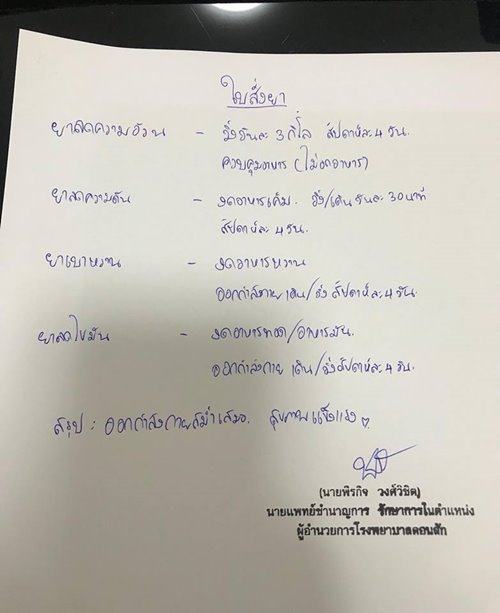 ใบสั่งยา
ยาลดความอ้วน - วิ่งวันละ 3 กิโล สัปดาห์ละ 4 วัน.
ควบคุมอาหาร (ไม่อดอาหาร)
ยาลดความดัน - งดอาหารเค็ม. วิ่ง/เดิน วันละ 30 นาที
สัปดาห์ละ 4 วัน.
ยาเบาหวาน - งดอาหารหวาน
ออกกำลังกาย เดิน/วิ่ง สัปดาห์ละ 4 วัน.
ยาลดไขมัน - งดอาหารทอด/อาหารมัน.
ออกกำลังกาย เดิน/วิ่งสัปดาห์ละ 4 วัน.
สรุป : ออกกำลังกายสม่ำเสมอ. สุขภาพแข็งแรง
(นายพิรกิจ วงศ์วิชิต)
นายแพทย์ชำนาญการ รักษาการในตำแหน่ง
ผู้อำนวยการโรงพยาบาลดอนสัก